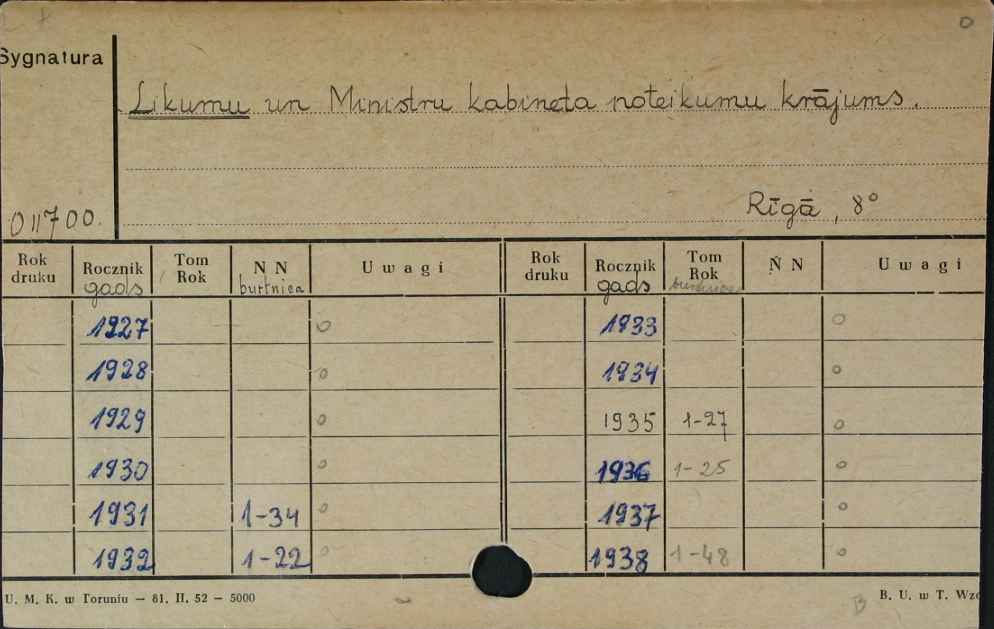 Sygnatura
Likumu un Ministru kabineta noteikumu krājums.
Rīgā, 8°
011700.
Rok druku Rocznik gads Tom Rok N N burtnica Uwagi Rok druku Rocznik gads Tom Rok N N Uwagi
1927 o 1933 o
1928 o 1934 o
1929 o 1935 1-27 o
1930 o 1936 1-25 o
1931 1-34 o 1937 o
1932 1-22 o 1938 1-48 o
U. M. K. w Toruniu — 81. II. 52 — 5000 B B. U. w T. Wzó